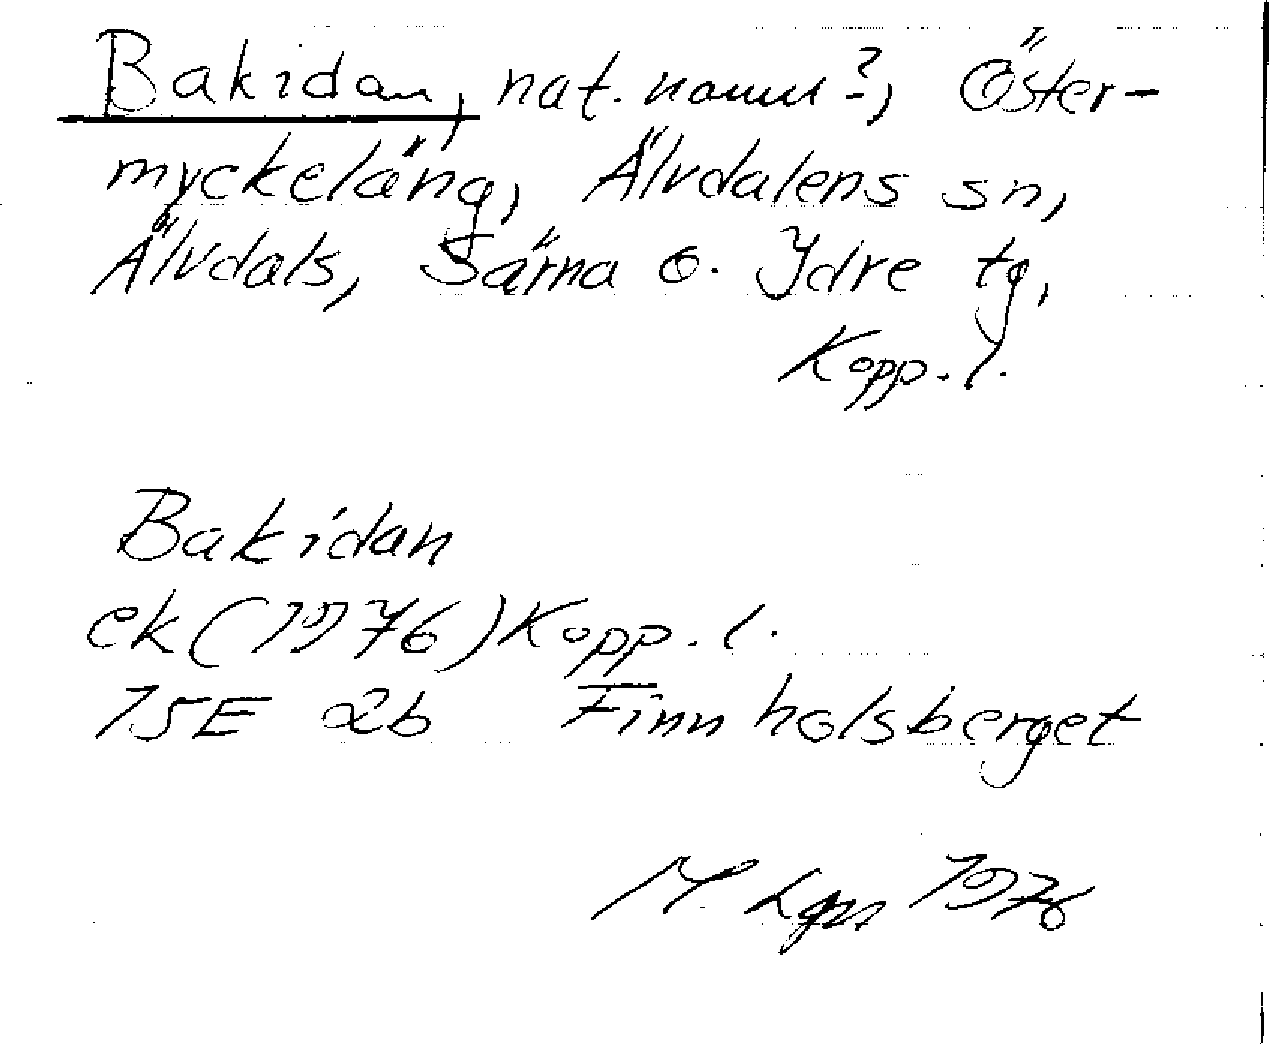 Bakidan, nat. namn?, Öster-
myckeläng, Älvdalens sn,
Älvdals, Särna o. Idre tg,
Kopp. l.
Bakidan
ek (1976) Kopp. l.
15E 2b Finnholsberget
M. Lgn 1976